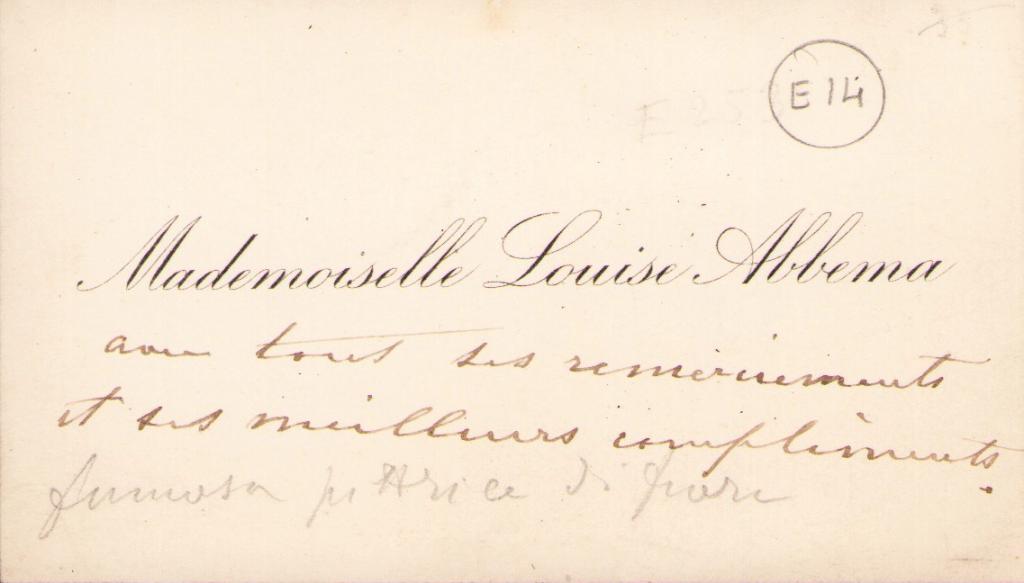 E 14
Mademoiselle Louise Abbema
avec tous ses remerciements
et ses meilleurs compliments.
famosa pittrice di fiori